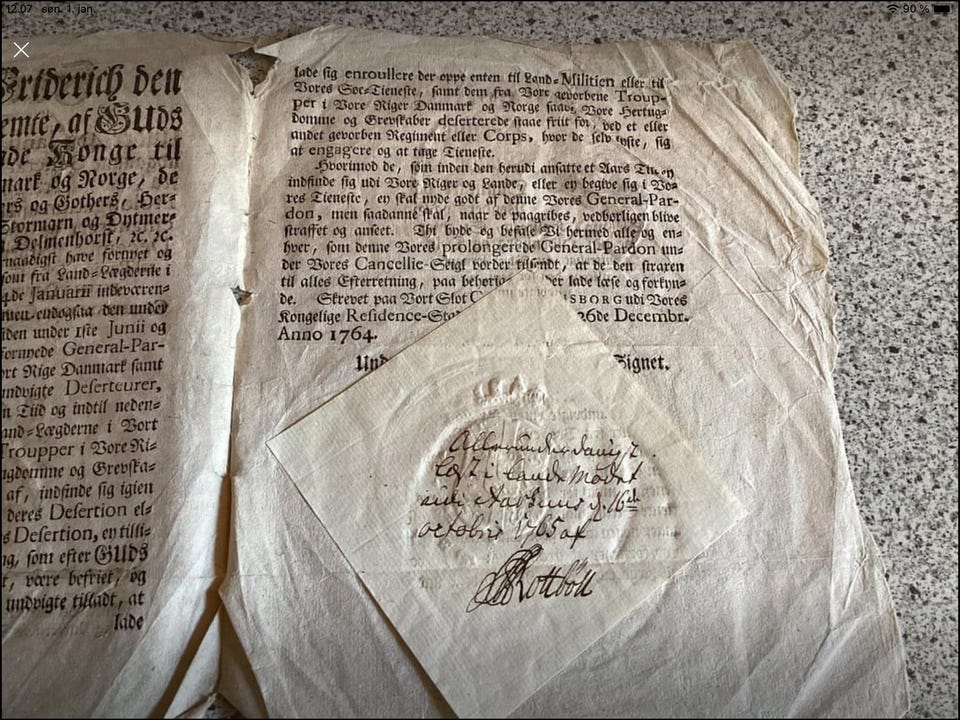 12.07 søn. 1. jan.
90 %
Friderich den
emte, af GUds
de Konge til
mark og Norge, de
ers og Gothers, Her-
Stormarn og Dytmer-
Delmenhorst, ꝛc. ꝛc.
naadigst have fornyet og
som fra Land-Lægderne i
4de Januarii indeværen-
men endogsaa den under
iden under 1ste Junii og
fornyede General-Par-
ort Rige Danmark samt
undvigte Deserteurer,
n Tiid og indtil neden-
and-Lægderne i Vort
Troupper i Vore Ri-
gdomme og Grevska-
af, indfinde sig igien
deres Desertion el-
s Desertion, en tilli-
ng, som efter GUds
t, være befriet, og
undvigte tilladt, at
lade
lade sig enroullere der oppe enten til Land-Militien eller til
Vores Søe-Tieneste, samt dem fra Vore gevorbene Troup-
per i Vore Riger Danmark og Norge saav. Vore Hertug-
domme og Grevskaber deserterede staae friit for, ved et eller
andet gevorben Regiment eller Corps, hvor de selv lyste, sig
at engagere og at tage Tieneste.
Hvorimod de, som inden den herudi ansatte et Aars Tid ey
indfinde sig udi Vore Riger og Lande, eller ey begive sig i Vo-
res Tieneste, ey skal nyde godt af denne Vores General-Par-
don, men saadanne skal, naar de paagribes, vedbørligen blive
straffet og anseet. Thi byde og befale Vi hermed alle og en-
hver, som denne Vores prolongerede General-Pardon un-
der Vores Cancellie-Seigl vorder tilsendt, at de den straxen
til alles Efterretning, paa behørige er lade læse og forkyn-
de. Skrevet paa Vort Slot C NSBORG udi Vores
Kongelige Residence-Sta 26de Decembr.
Anno 1764.
Und Signet.
Allerunderdanigst
læst i Lands Modet
udi Aarhuus d. 16de
octobris 1765 af
Rottböll